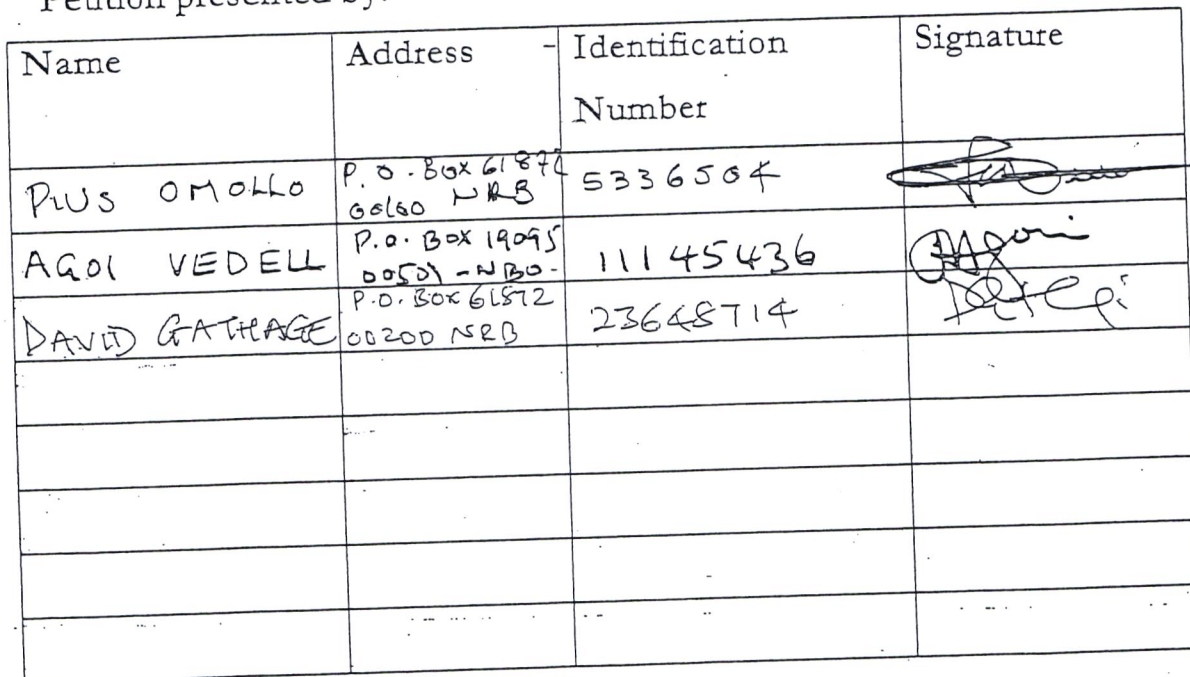 Petition presented by:
Name Address - Identification Number Signature
PIUS OMOLLO P.O. BOX 00100 NRB 5336504
AGOI VEDELL P.O. BOX 19095 00501 - NBO - 11145436
DAVID GATHAGE P.O. BOX 61572 00200 NRB 23648714